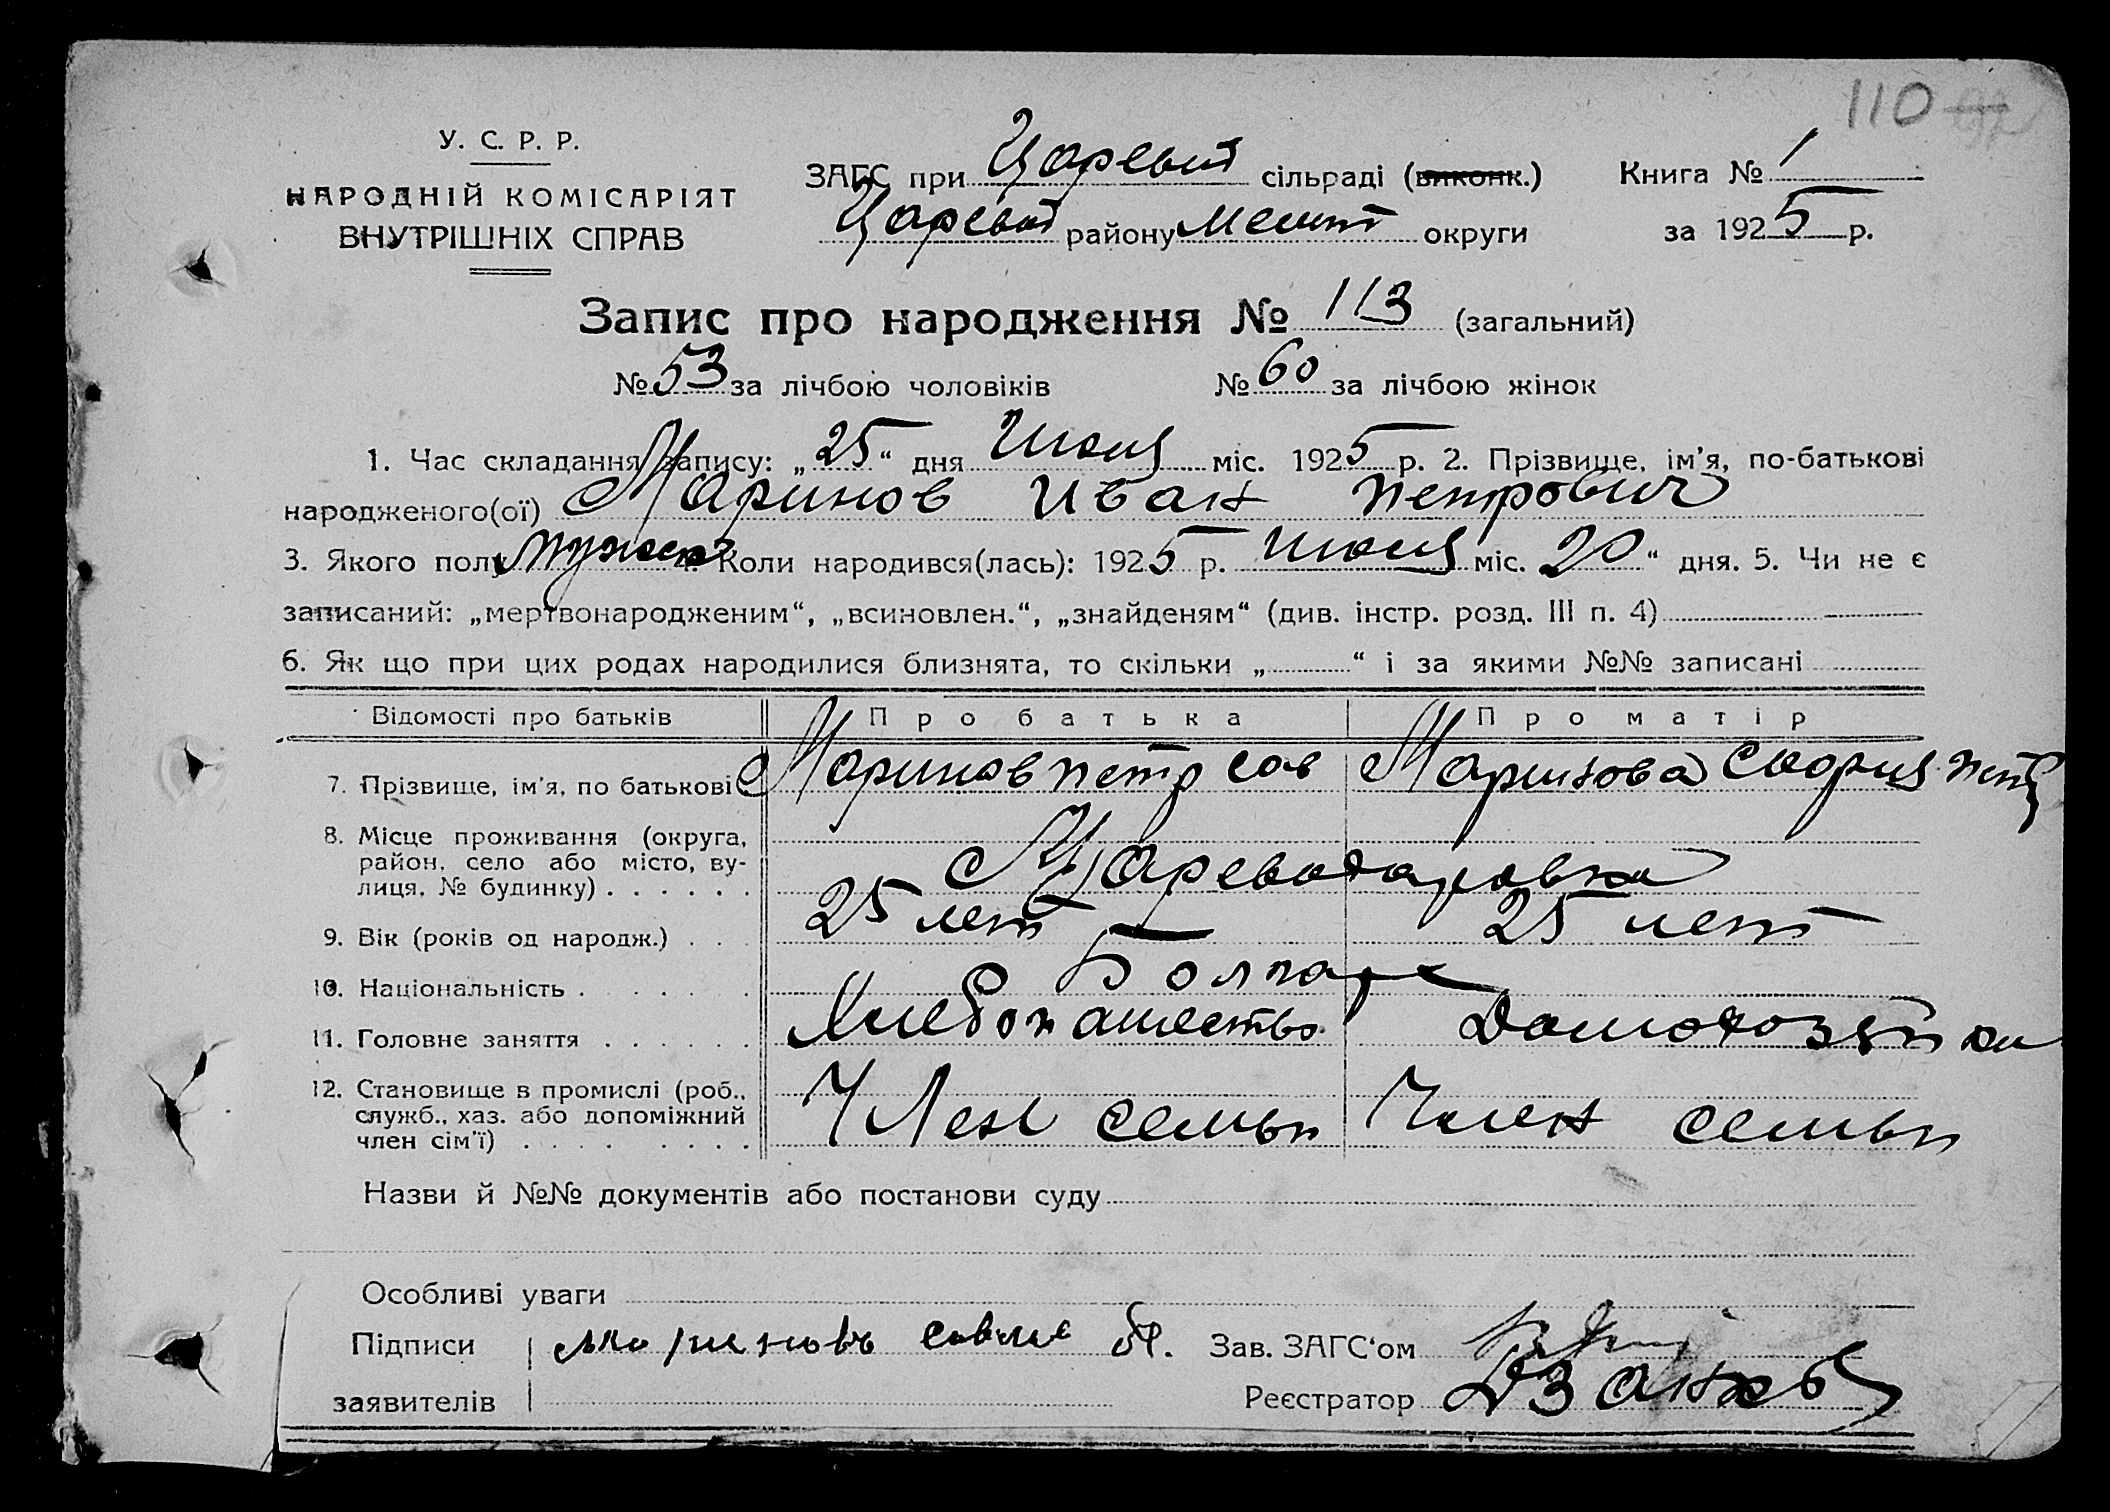 110
У. С. Р. Р.
НАРОДНІЙ КОМІСАРІЯТ
ВНУТРІШНІХ СПРАВ
ЗАГС при Царевод сільраді (виконк.)
Царевод району Мелит округи
Книга № 1
за 1925 р.
Запис про народження № 113 (загальний)
№ 53 за лічбою чоловіків № 60 за лічбою жінок
1. Час складання запису: „25“ дня Июля міс. 1925 р. 2. Прізвище, ім'я, по-батькові
народженого(ої) Маринов Иван Петрович
3. Якого полу мужск 4. Коли народився(лась): 1925 р. Июля міс. 20“ дня. 5. Чи не є
записаний: „мертвонародженим“, „всиновлен.“, „знайденям“ (див. інстр. розд. III п. 4)
6. Як що при цих родах народилися близнята, то скільки „ “ і за якими №№ записані
Відомості про батьків Про батька Про матір
7. Прізвище, ім'я, по батькові Маринов Петр Сав Маринова София Петр
8. Місце проживання (округа,
район, село або місто, ву-
лиця, № будинку)
9. Вік (років од народж.) 25 лет 25 лет
10. Національність Болгаре
11. Головне заняття Хлебопашество Домохозяйки
12. Становище в промислі (роб.,
служб., хаз. або допоміжний
член сім'ї) Член семьи Член семьи
Назви й №№ документів або постанови суду
Особливі уваги
Підписи
заявителів
Мариновъ
Зав. ЗАГС'ом
Реєстратор